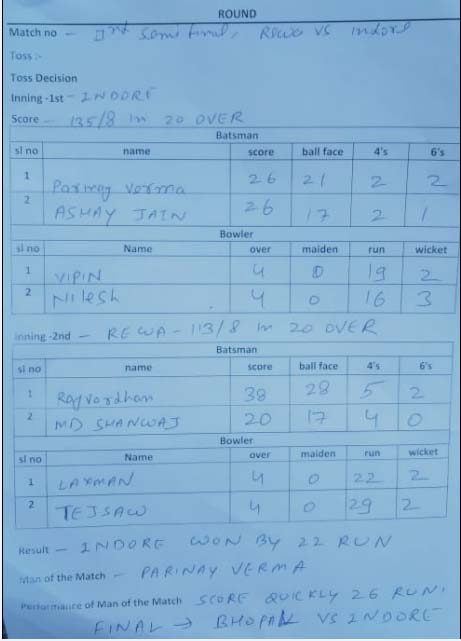 ROUND
Match no - IInd semi final, Rewa vs Indore
Toss :-
Toss Decision
Inning -1st - INDORE
Score - 135/8 in 20 OVER
Batsman
sl no name score ball face 4's 6's
1 Parinay Verma 26 21 2 2
2 ASHAY JAIN 26 17 2 1
Bowler
sl no Name over maiden run wicket
1 VIPIN 4 0 19 2
2 Nilesh 4 0 16 3
Inning -2nd - REWA - 113/8 in 20 OVER
Batsman
sl no name score ball face 4's 6's
1 Rajvardhan 38 28 5 2
2 MD SHANWAJ 20 17 4 0
Bowler
sl no Name over maiden run wicket
1 LAXMAN 4 0 22 2
2 TEJSAW 4 0 29 2
Result - INDORE WON BY 22 RUN
Man of the Match - PARINAY VERMA
Performance of Man of the Match SCORE QUICKLY 26 RUN.
FINAL → BHOPAL VS INDORE